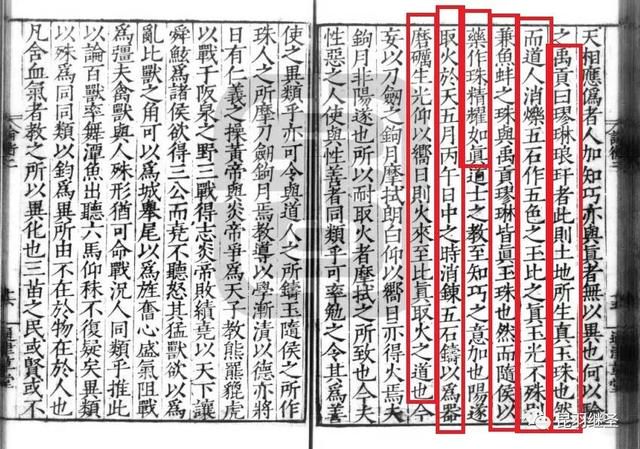 天相應偽者人加知巧亦與真者無以異也何以驗
之禹貢曰璆琳琅玕者此則土地所生真玉珠也然
而道人消爍五石作五色之玉比之真玉光不殊別
兼魚蚌之珠與禹貢璆琳皆眞玉珠也然而隨侯以
藥作珠精耀如眞道士之教至知巧之意加也陽遂
取火於天五月丙午日中之時消鍊五石鑄以爲器
磨礪生光仰以嚮日則火來至比眞取火之道也今
妄以刀劍之鉤月摩拭朗白仰以嚮日亦得火焉夫
鉤月非陽遂也所以耐取火者摩拭之所致也今夫
性惡之人使與性善者同類乎可率勉之令其爲善
使之異類乎亦可令與道人之所鑄玉隨侯之所作
珠人之所摩刀劍鉤月焉教導以學漸漬以德亦將
日有仁義之操黃帝與炎帝爭爲天子教熊羆貔虎
以戰于阪泉之野三戰得志炎帝敗績堯以天下讓
舜鯀爲諸侯欲得三公而堯不聽怒其猛獸欲以爲
亂比獸之角可以爲城舉尾以爲旌奮心盛氣阻戰
爲彊夫禽獸與人殊形猶可命戰況人同類乎推此
以論百獸率舞潭魚出聽六馬仰秣不復疑矣異類
以殊爲同同類以鈞爲異所由不在於物在於人也
凡含血氣者教之所以異化也三苗之民或賢或不
昆羽继圣